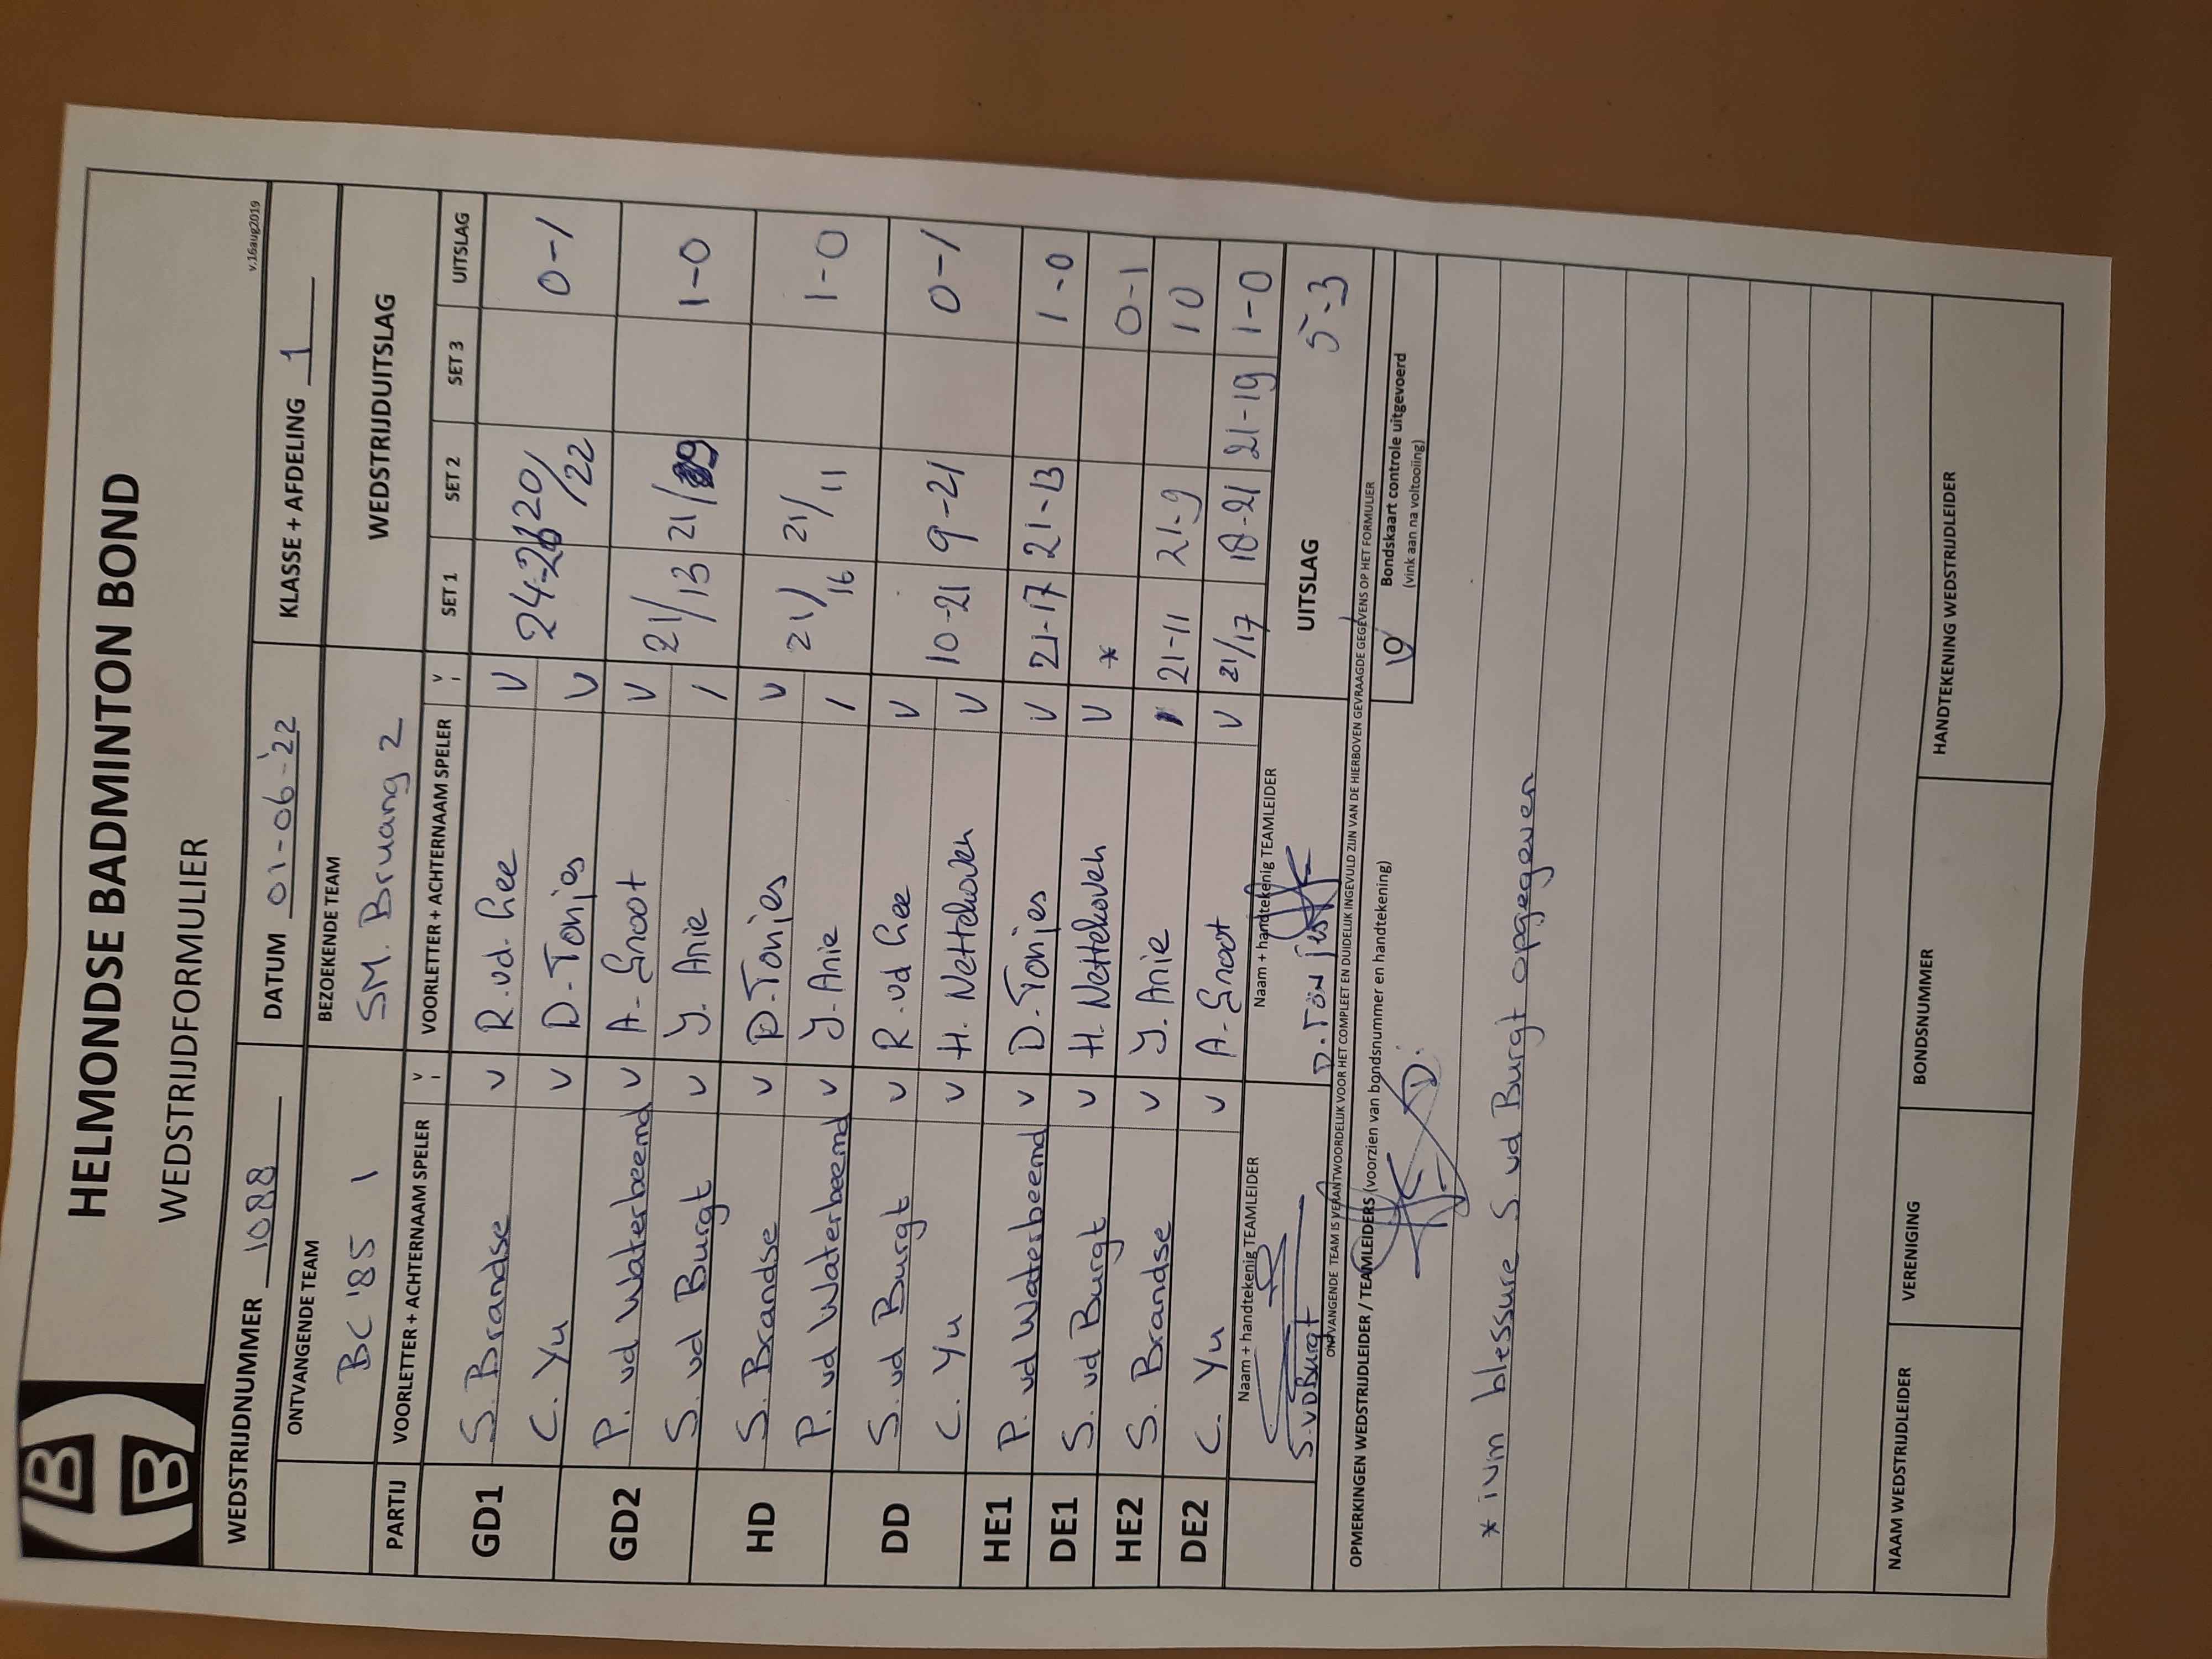 HELMONDSE BADMINTON BOND
WEDSTRIJDFORMULIER
v.16aug2019
WEDSTRIJDNUMMER 1088 DATUM 01-06-'22 KLASSE + AFDELING 1
ONTVANGENDE TEAM BEZOEKENDE TEAM WEDSTRIJDUITSLAG
BC '85 1 SM. Bruang 2
PARTIJ VOORLETTER + ACHTERNAAM SPELER V VOORLETTER + ACHTERNAAM SPELER V SET 1 SET 2 SET 3 UITSLAG
GD1 S. Brandse v R. vd. Lee v 24-26 20/22 0-1
C. Yu v D. Tonies v
GD2 P. vd Waterbeemd v A. Groot v 21/13 21/19 1-0
S. vd Burgt v J. Arie /
HD S. Brandse v D. Tonies v 21/16 21/11 1-0
P. vd Waterbeemd v J. Arie /
DD S. vd Burgt v R. vd Lee v 10-21 9-21 0-1
C. Yu v H. Nettekoven v
HE1 P. vd Waterbeemd v D. Tonies v 21-17 21-13 1-0
DE1 S. vd Burgt v H. Nettekoven v * 0-1
HE2 S. Brandse v J. Arie / 21-11 21-9 1 0
DE2 C. Yu v A. Groot v 21/17 18-21 21-19 1-0
Naam + handtekenig TEAMLEIDER Naam + handtekenig TEAMLEIDER UITSLAG 5-3
S. VD Burgt D. Tönjes
ONTVANGENDE TEAM IS VERANTWOORDELIJK VOOR HET COMPLEET EN DUIDELIJK INGEVULD ZIJN VAN DE HIERBOVEN GEVRAAGDE GEGEVENS OP HET FORMULIER
OPMERKINGEN WEDSTRIJDLEIDER / TEAMLEIDERS (voorzien van bondsnummer en handtekening)
Bondskaart controle uitgevoerd
(vink aan na voltooiing)
* ivm blessure S. vd Burgt opgegeven
NAAM WEDSTRIJDLEIDER VERENIGING BONDSNUMMER HANDTEKENING WEDSTRIJDLEIDER